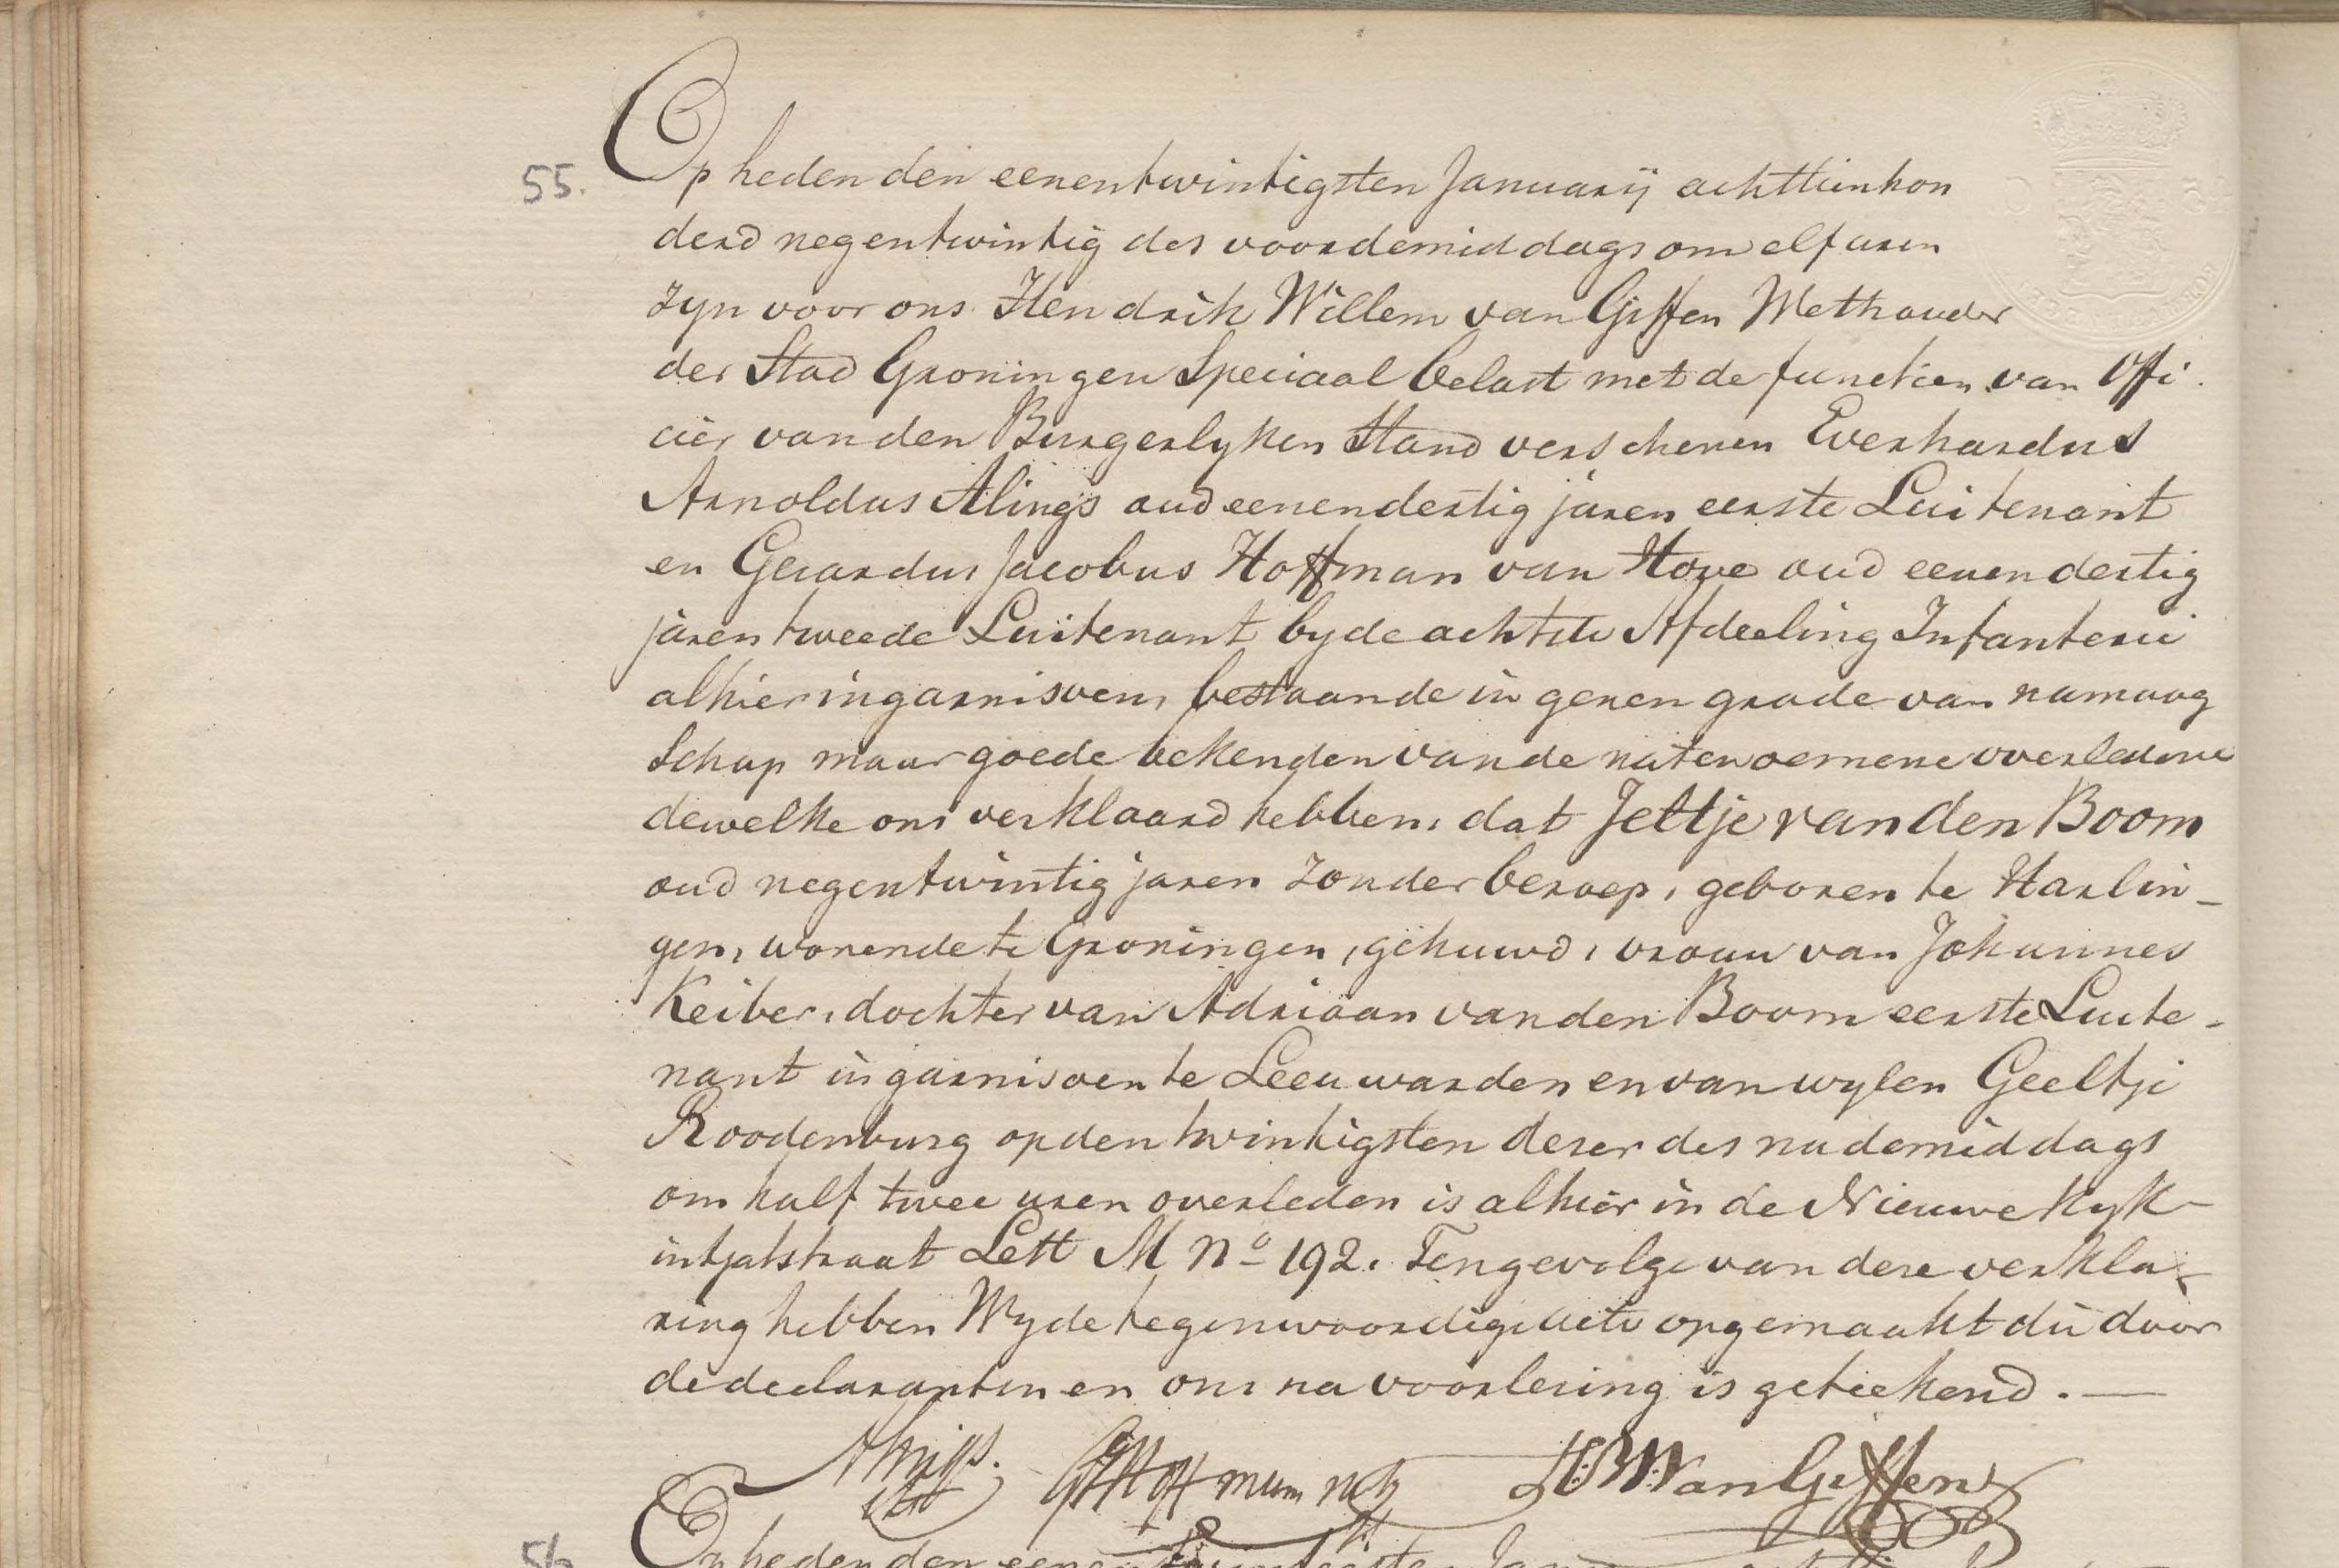 55. Op heden den eenentwintigsten Januarij achttienhon
derd negentwintig des voordemiddags om elf uren
zyn voor ons Hendrik Willem van Giffen Wethouder
der Stad Groningen Speciaal belast met de functien van Offi
cier van den Burgerlyken Stand verschenen Everhardus
Arnoldus Alings oud eenendertig jaren eerste Luitenant
en Gerardus Jacobus Hoffman van Hove oud eenendertig
jaren tweede Luitenant by de achtste Afdeeling Infanterie
alhier in garnisoen, bestaande in genen grade van namaag
Schap maar goede bekenden van de natenoemene overledene
dewelke ons verklaard hebben, dat Jeltje van den Boom
oud negentwintig jaren zonder beroep, geboren te Harlin-
gen, wonende te Groningen, gehuwd, vrouw van Johannes
Keiber, dochter van Adriaan van den Boom eerste Luite-
nant in garnisoen te Leeuwarden en van wylen Geeltje
Roodenburg op den twintigsten dezer des nademiddags
om half twee uren overleden is alhier in de Nieuwe Kyk-
intjatstraat Lett M No 192. Tengevolge van deze verkla-
ring hebben Wy de tegenwoordige acte opgemaakt die door
de declaranten en ons na voorlezing is geteekend. —
Alings. GJ Hoffman v H HW Van Giffen
56 Op heden den eenentwintigsten